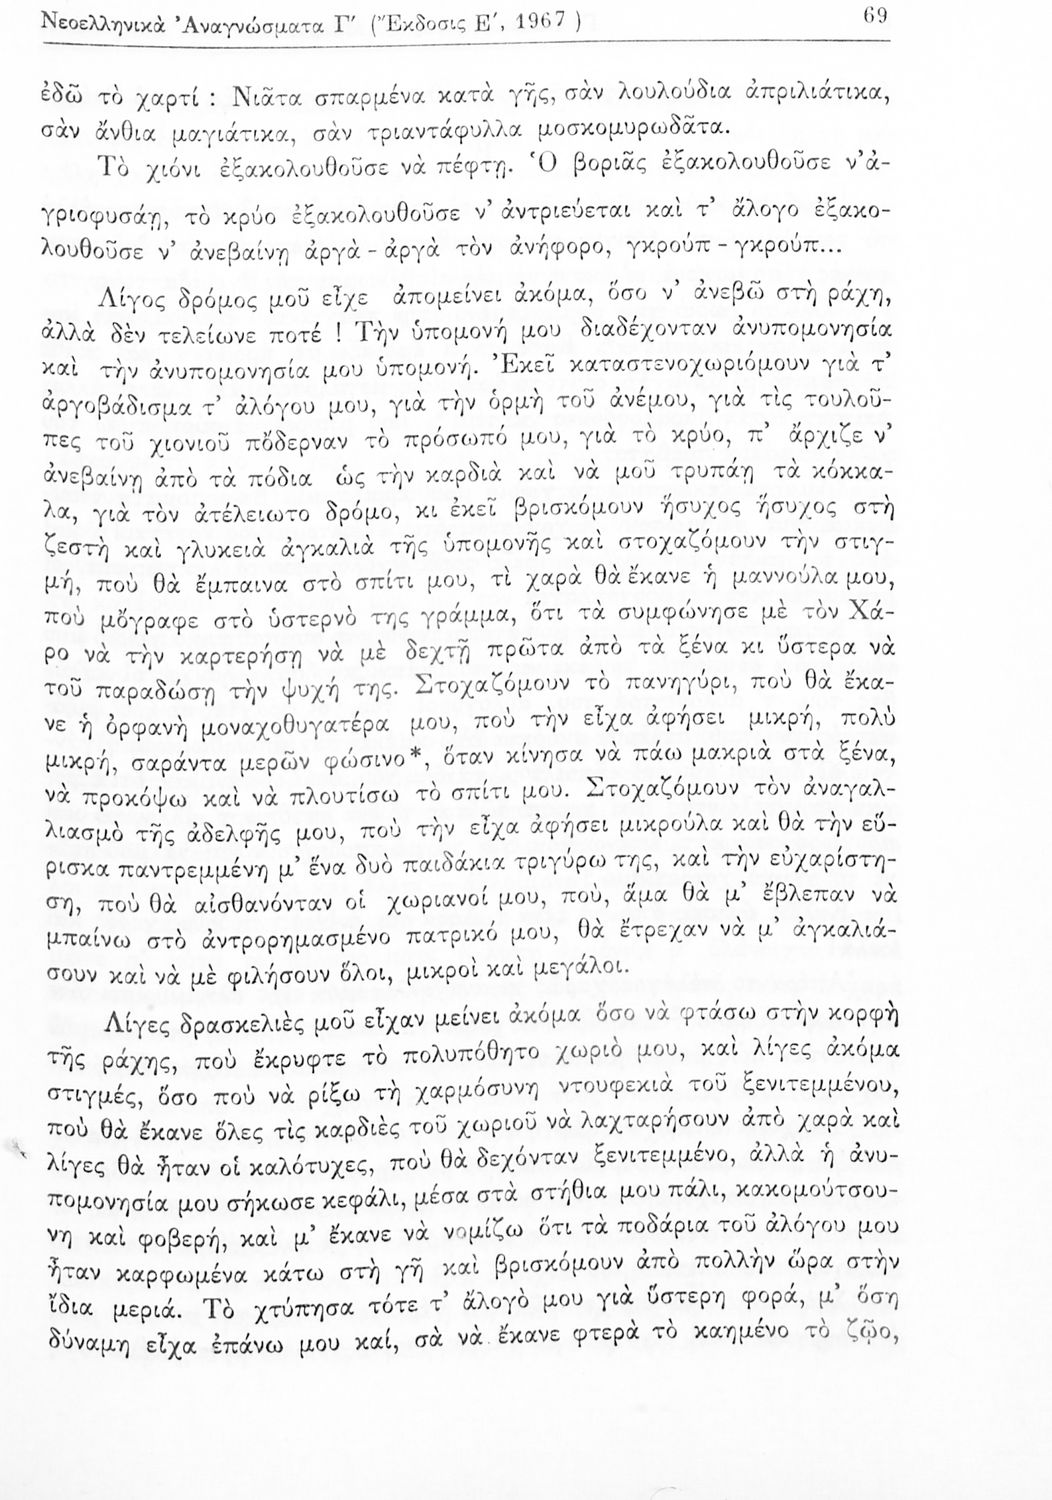 Νεοελληνικὰ Ἀναγνώσματα Γ′ (Ἔκδοσις Ε′, 1967 )
69
ἐδῶ τὸ χαρτί : Νιᾶτα σπαρμένα κατὰ γῆς, σὰν λουλούδια ἀπριλιάτικα,
σὰν ἄνθια μαγιάτικα, σὰν τριαντάφυλλα μοσκομυρωδᾶτα.
Τὸ χιόνι ἐξακολουθοῦσε νὰ πέφτῃ. Ὁ βοριᾶς ἐξακολουθοῦσε ν’ ἀ-
γριοφυσάῃ, τὸ κρύο ἐξακολουθοῦσε ν’ ἀντριεύεται καὶ τ’ ἄλογο ἐξακο-
λουθοῦσε ν’ ἀνεβαίνῃ ἀργὰ - ἀργὰ τὸν ἀνήφορο, γκρούπ - γκρούπ...
Λίγος δρόμος μοῦ εἶχε ἀπομείνει ἀκόμα, ὅσο ν’ ἀνεβῶ στὴ ράχη,
ἀλλὰ δὲν τελείωνε ποτέ ! Τὴν ὑπομονή μου διαδέχονταν ἀνυπομονησία
καὶ τὴν ἀνυπομονησία μου ὑπομονή. Ἐκεῖ καταστενοχωριόμουν γιὰ τ’
ἀργοβάδισμα τ’ ἀλόγου μου, γιὰ τὴν ὁρμὴ τοῦ ἀνέμου, γιὰ τὶς τουλοῦ-
πες τοῦ χιονιοῦ πὄδερναν τὸ πρόσωπό μου, γιὰ τὸ κρύο, π’ ἄρχιζε ν’
ἀνεβαίνῃ ἀπὸ τὰ πόδια ὡς τὴν καρδιὰ καὶ νὰ μοῦ τρυπάῃ τὰ κόκκα-
λα, γιὰ τὸν ἀτέλειωτο δρόμο, κι ἐκεῖ βρισκόμουν ἥσυχος ἥσυχος στὴ
ζεστὴ καὶ γλυκειὰ ἀγκαλιὰ τῆς ὑπομονῆς καὶ στοχαζόμουν τὴν στιγ-
μή, ποὺ θὰ ἔμπαινα στὸ σπίτι μου, τὶ χαρὰ θὰ ἔκανε ἡ μαννούλα μου,
ποὺ μὄγραφε στὸ ὑστερνὸ της γράμμα, ὅτι τὰ συμφώνησε μὲ τὸν Χά-
ρο νὰ τὴν καρτερήσῃ νὰ μὲ δεχτῇ πρῶτα ἀπὸ τὰ ξένα κι ὕστερα νὰ
τοῦ παραδώσῃ τὴν ψυχή της. Στοχαζόμουν τὸ πανηγύρι, ποὺ θὰ ἔκα-
νε ἡ ὀρφανὴ μοναχοθυγατέρα μου, ποὺ τὴν εἶχα ἀφήσει μικρή, πολὺ
μικρή, σαράντα μερῶν φώσινο*, ὅταν κίνησα νὰ πάω μακριὰ στὰ ξένα,
νὰ προκόψω καὶ νὰ πλουτίσω τὸ σπίτι μου. Στοχαζόμουν τὸν ἀναγαλ-
λιασμὸ τῆς ἀδελφῆς μου, ποὺ τὴν εἶχα ἀφήσει μικρούλα καὶ θὰ τὴν εὕ-
ρισκα παντρεμμένη μ’ ἕνα δυὸ παιδάκια τριγύρω της, καὶ τὴν εὐχαρίστη-
ση, ποὺ θὰ αἰσθανόνταν οἱ χωριανοί μου, πού, ἅμα θὰ μ’ ἔβλεπαν νὰ
μπαίνω στὸ ἀντρορημασμένο πατρικό μου, θὰ ἔτρεχαν νὰ μ’ ἀγκαλιά-
σουν καὶ νὰ μὲ φιλήσουν ὅλοι, μικροὶ καὶ μεγάλοι.
Λίγες δρασκελιὲς μοῦ εἶχαν μείνει ἀκόμα ὅσο νὰ φτάσω στὴν κορφὴ
τῆς ράχης, ποὺ ἔκρυφτε τὸ πολυπόθητο χωριὸ μου, καὶ λίγες ἀκόμα
στιγμές, ὅσο ποὺ νὰ ρίξω τὴ χαρμόσυνη ντουφεκιὰ τοῦ ξενιτεμμένου,
ποὺ θὰ ἔκανε ὅλες τὶς καρδιὲς τοῦ χωριοῦ νὰ λαχταρήσουν ἀπὸ χαρὰ καὶ
λίγες θὰ ἦταν οἱ καλότυχες, ποὺ θὰ δεχόνταν ξενιτεμμένο, ἀλλὰ ἡ ἀνυ-
πομονησία μου σήκωσε κεφάλι, μέσα στὰ στήθια μου πάλι, κακομούτσου-
νη καὶ φοβερή, καὶ μ’ ἔκανε νὰ νομίζω ὅτι τὰ ποδάρια τοῦ ἀλόγου μου
ἦταν καρφωμένα κάτω στὴ γῆ καὶ βρισκόμουν ἀπὸ πολλὴν ὥρα στὴν
ἴδια μεριά. Τὸ χτύπησα τότε τ’ ἄλογὸ μου γιὰ ὕστερη φορά, μ’ ὅση
δύναμη εἶχα ἐπάνω μου καί, σὰ νὰ ἔκανε φτερὰ τὸ καημένο τὸ ζῷο,